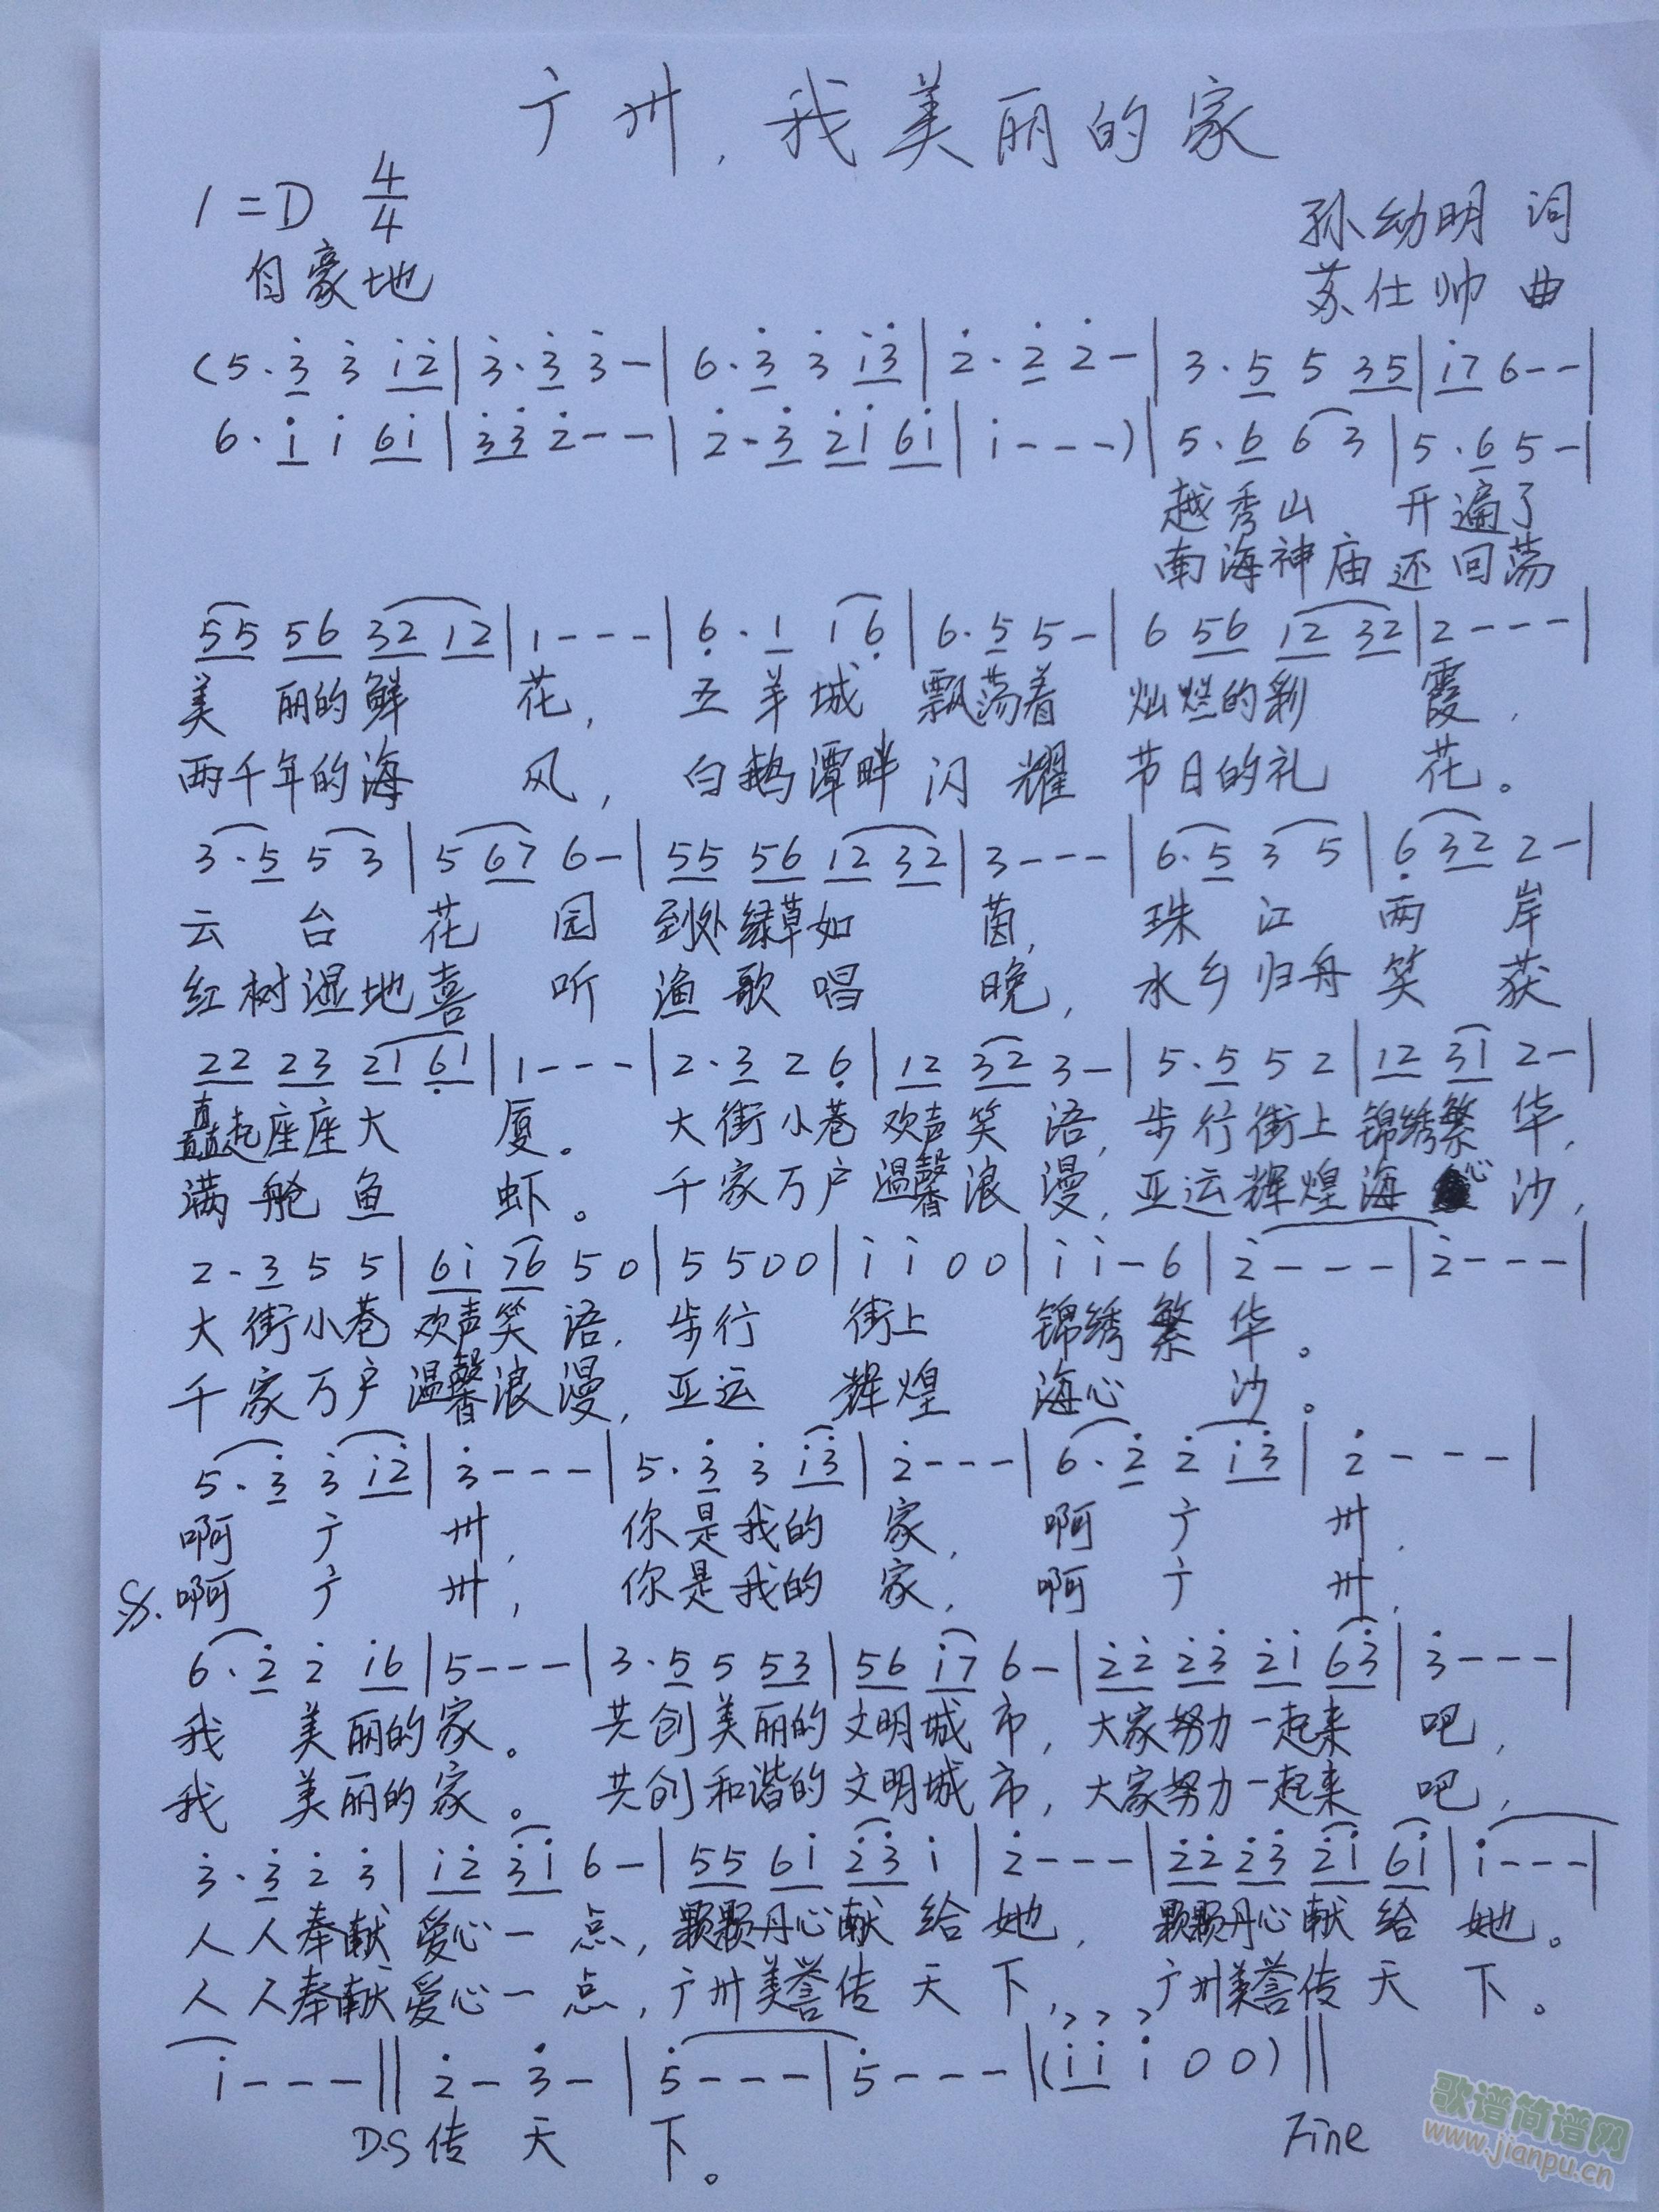 广州，我美丽的家
1=D 4/4
孙幼明 词
自豪地
苏仕帅 曲
(5·3̇ 3̇ 1̇2̇|3̇·3̇ 3̇-|6·3̇ 3̇ 1̇3̇|2̇·2̇ 2̇-|3·5 5 35|1̇7 6--|
6·1̇ 1̇ 61̇|3̇3̇ 2̇--|2̇·3̇ 2̇1̇ 61̇|1̇---)|5·6 6 3|5·6 5-|
越秀山 开遍了
南海神庙还回荡
55 56 32 12|1---|6̣·1 1 6̣|6·5 5-|6 56 12 32|2---|
美 丽的鲜 花， 五羊城 飘荡着 灿烂的彩 霞，
两千年的海 风， 白鹅潭畔闪耀 节日的礼 花。
3·5 5 3|5 67 6-|55 56 12 32|3---|6·5 3 5|6̣ 32 2-|
云 台 花 园 到处绿草如 茵， 珠 江 两 岸
红树湿地喜 听 渔歌唱 晚， 水乡归舟笑 获
22 23 21 6̣1|1---|2·3 2 6̣|12 32 3-|5·5 5 2|12 31 2-|
矗起座座大 厦。 大街小巷 欢声笑 语，步行街上 锦绣繁 华，
满舱鱼 虾。 千家万户 温馨浪 漫，亚运辉煌海 心 沙，
2·3 5 5|61̇ 76 5 0|5 5 0 0|1̇ 1̇ 0 0|1̇ 1̇-6|2̇---|2̇---|
大街小巷 欢声笑 语，步行 街上 锦绣繁 华。
千家万户 温馨浪 漫，亚运 辉煌 海心 沙。
5·3̇ 3̇ 1̇2̇|3̇---|5·3̇ 3̇ 1̇3̇|2̇---|6·2̇ 2̇ 1̇3̇|2̇---|
啊 广 州， 你是我的 家， 啊 广 州，
𝄋 啊 广 州， 你是我的 家， 啊 广 州，
6·2̇ 2̇ 1̇6|5---|3·5 5 53|56 1̇7 6-|2̇2̇ 2̇3̇ 2̇1̇ 63̇|3̇---|
我 美丽的家。 共创美丽的文明城 市，大家努力一起来 吧，
我 美丽的家。 共创和谐的文明城 市，大家努力一起来 吧，
3̇·3̇ 2̇ 3̇|1̇2̇ 3̇1̇ 6-|55 61̇ 2̇3̇ 1̇|2̇---|2̇2̇ 2̇3̇ 2̇1̇ 61̇|1̇---|
人人奉献 爱心一 点，颗颗丹心献 给 她， 颗颗丹心献 给 她。
人人奉献 爱心一 点，广州美誉传 天 下， 广州美誉传 天 下。
1̇---‖2̇-3̇-|5̇---|5̇---|(1̇1̇ 1̇ 0 0)‖
D.S 传 天 下。 Fine
歌谱简谱网
www.jianpu.cn